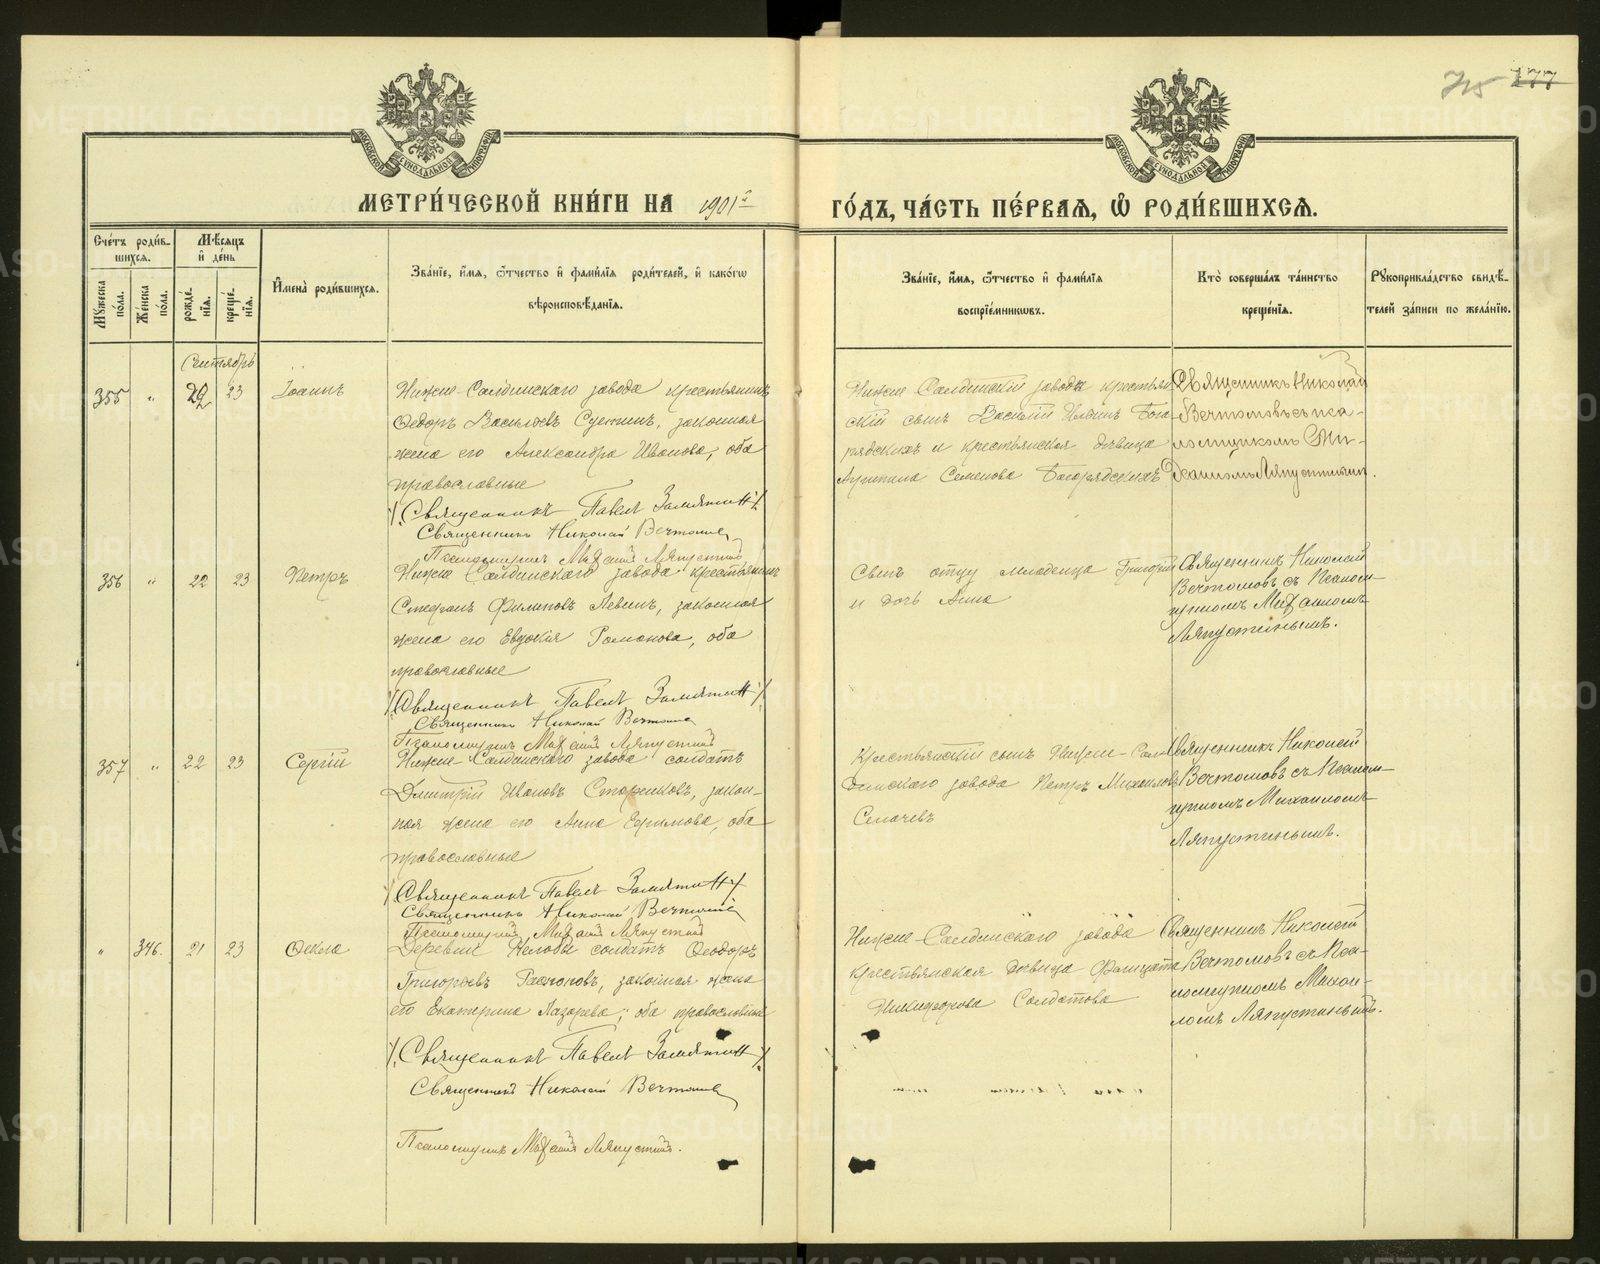 177
МОСКОВСКОЙ СУНОДАЛЬНОЙ ТИПОГРАФІИ
МОСКОВСКОЙ СУНОДАЛЬНОЙ ТИПОГРАФІИ
МЕТРИ́ЧЕСКОЙ КНИ́ГИ НА 1901й
ГО́ДЪ, ЧА́СТЬ ПЕ́РВАЯ, Ѽ РОДИ́ВШИХСЯ.
Сче́тъ роди́в-
шихся.
Мꙋжеска по́ла.
Же́нска по́ла.
Мѣ́сяцъ
и҆ де́нь
рожде́нїя.
креще́нїя.
И҆мена̀ роди́вшихся.
Зва́нїе, и҆́мя, ѻ҆́тчество и҆ фами́лїя роди́телей, и҆ како́гѡ
вѣроисповѣ́данїя.
Зва́нїе, и҆́мя, ѻ҆́тчество и҆ фами́лїя
воспрїе́мникѡвъ.
Кто̀ соверша́лъ та́инство
креще́нїя.
Рꙋкоприкла́дство свидѣ́-
телей за́писи по жела́нїю.
Сентябрь
355 " 22 23 Іоаннъ
Нижне-Салдинскаго завода крестьянинъ
Ѳедоръ Васильевъ законная
жена его Александра Иванова, оба
православные
Священникъ Павелъ Замятинъ
Священникъ Николай Вечтомовъ
Псаломщикъ Михаилъ Ляпустинъ
Нижне-Салдинскій завода крестьян-
скій сынъ Василій
и крестьянская дѣвица
Семенова
Священникъ Николай
Вечтомовъ съ пса-
ломщикомъ Ми-
хаиломъ Ляпустинымъ.
356 " 22 23 Петръ
Нижне-Салдинскаго завода крестьянинъ
Стефанъ Филиповъ Левинъ, законная
жена его Евдокія Романова, оба
православные
Священникъ Павелъ Замятинъ
Священникъ Николай Вечтомовъ
Псаломщикъ Михаилъ Ляпустинъ
Сынъ отцу младенца Григорій
и дочь Анна
Священникъ Николай
Вечтомовъ съ Псалом-
щикомъ Михаиломъ
Ляпустинымъ.
357 " 22 23 Сергій
Нижне-Салдинскаго завода солдатъ
Дмитрій Ивановъ Стариковъ, закон-
ная жена его Анна Ефимова, оба
православные
Священникъ Павелъ Замятинъ
Священникъ Николай Вечтомовъ
Псаломщикъ Михаилъ Ляпустинъ
Крестьянскій сынъ Нижне-Сал-
динскаго завода Петръ Михаиловъ
Священникъ Николай
Вечтомовъ съ Псалом-
щикомъ Михаиломъ
Ляпустинымъ.
" 346. 21 23 Ѳекла
Деревни Нелобы солдатъ Ѳеодоръ
Григорьевъ законная жена
его Екатерина Лазарева, оба православные
Священникъ Павелъ Замятинъ
Священникъ Николай Вечтомовъ
Псаломщикъ Михаилъ Ляпустинъ.
Нижне-Салдинскаго завода
крестьянская дѣвица Фаицата
Никифорова Солдатова
Священникъ Николай
Вечтомовъ съ Пса-
ломщикомъ Михаи-
ломъ Ляпустинымъ.
METRIKI.GASO-URAL.RU